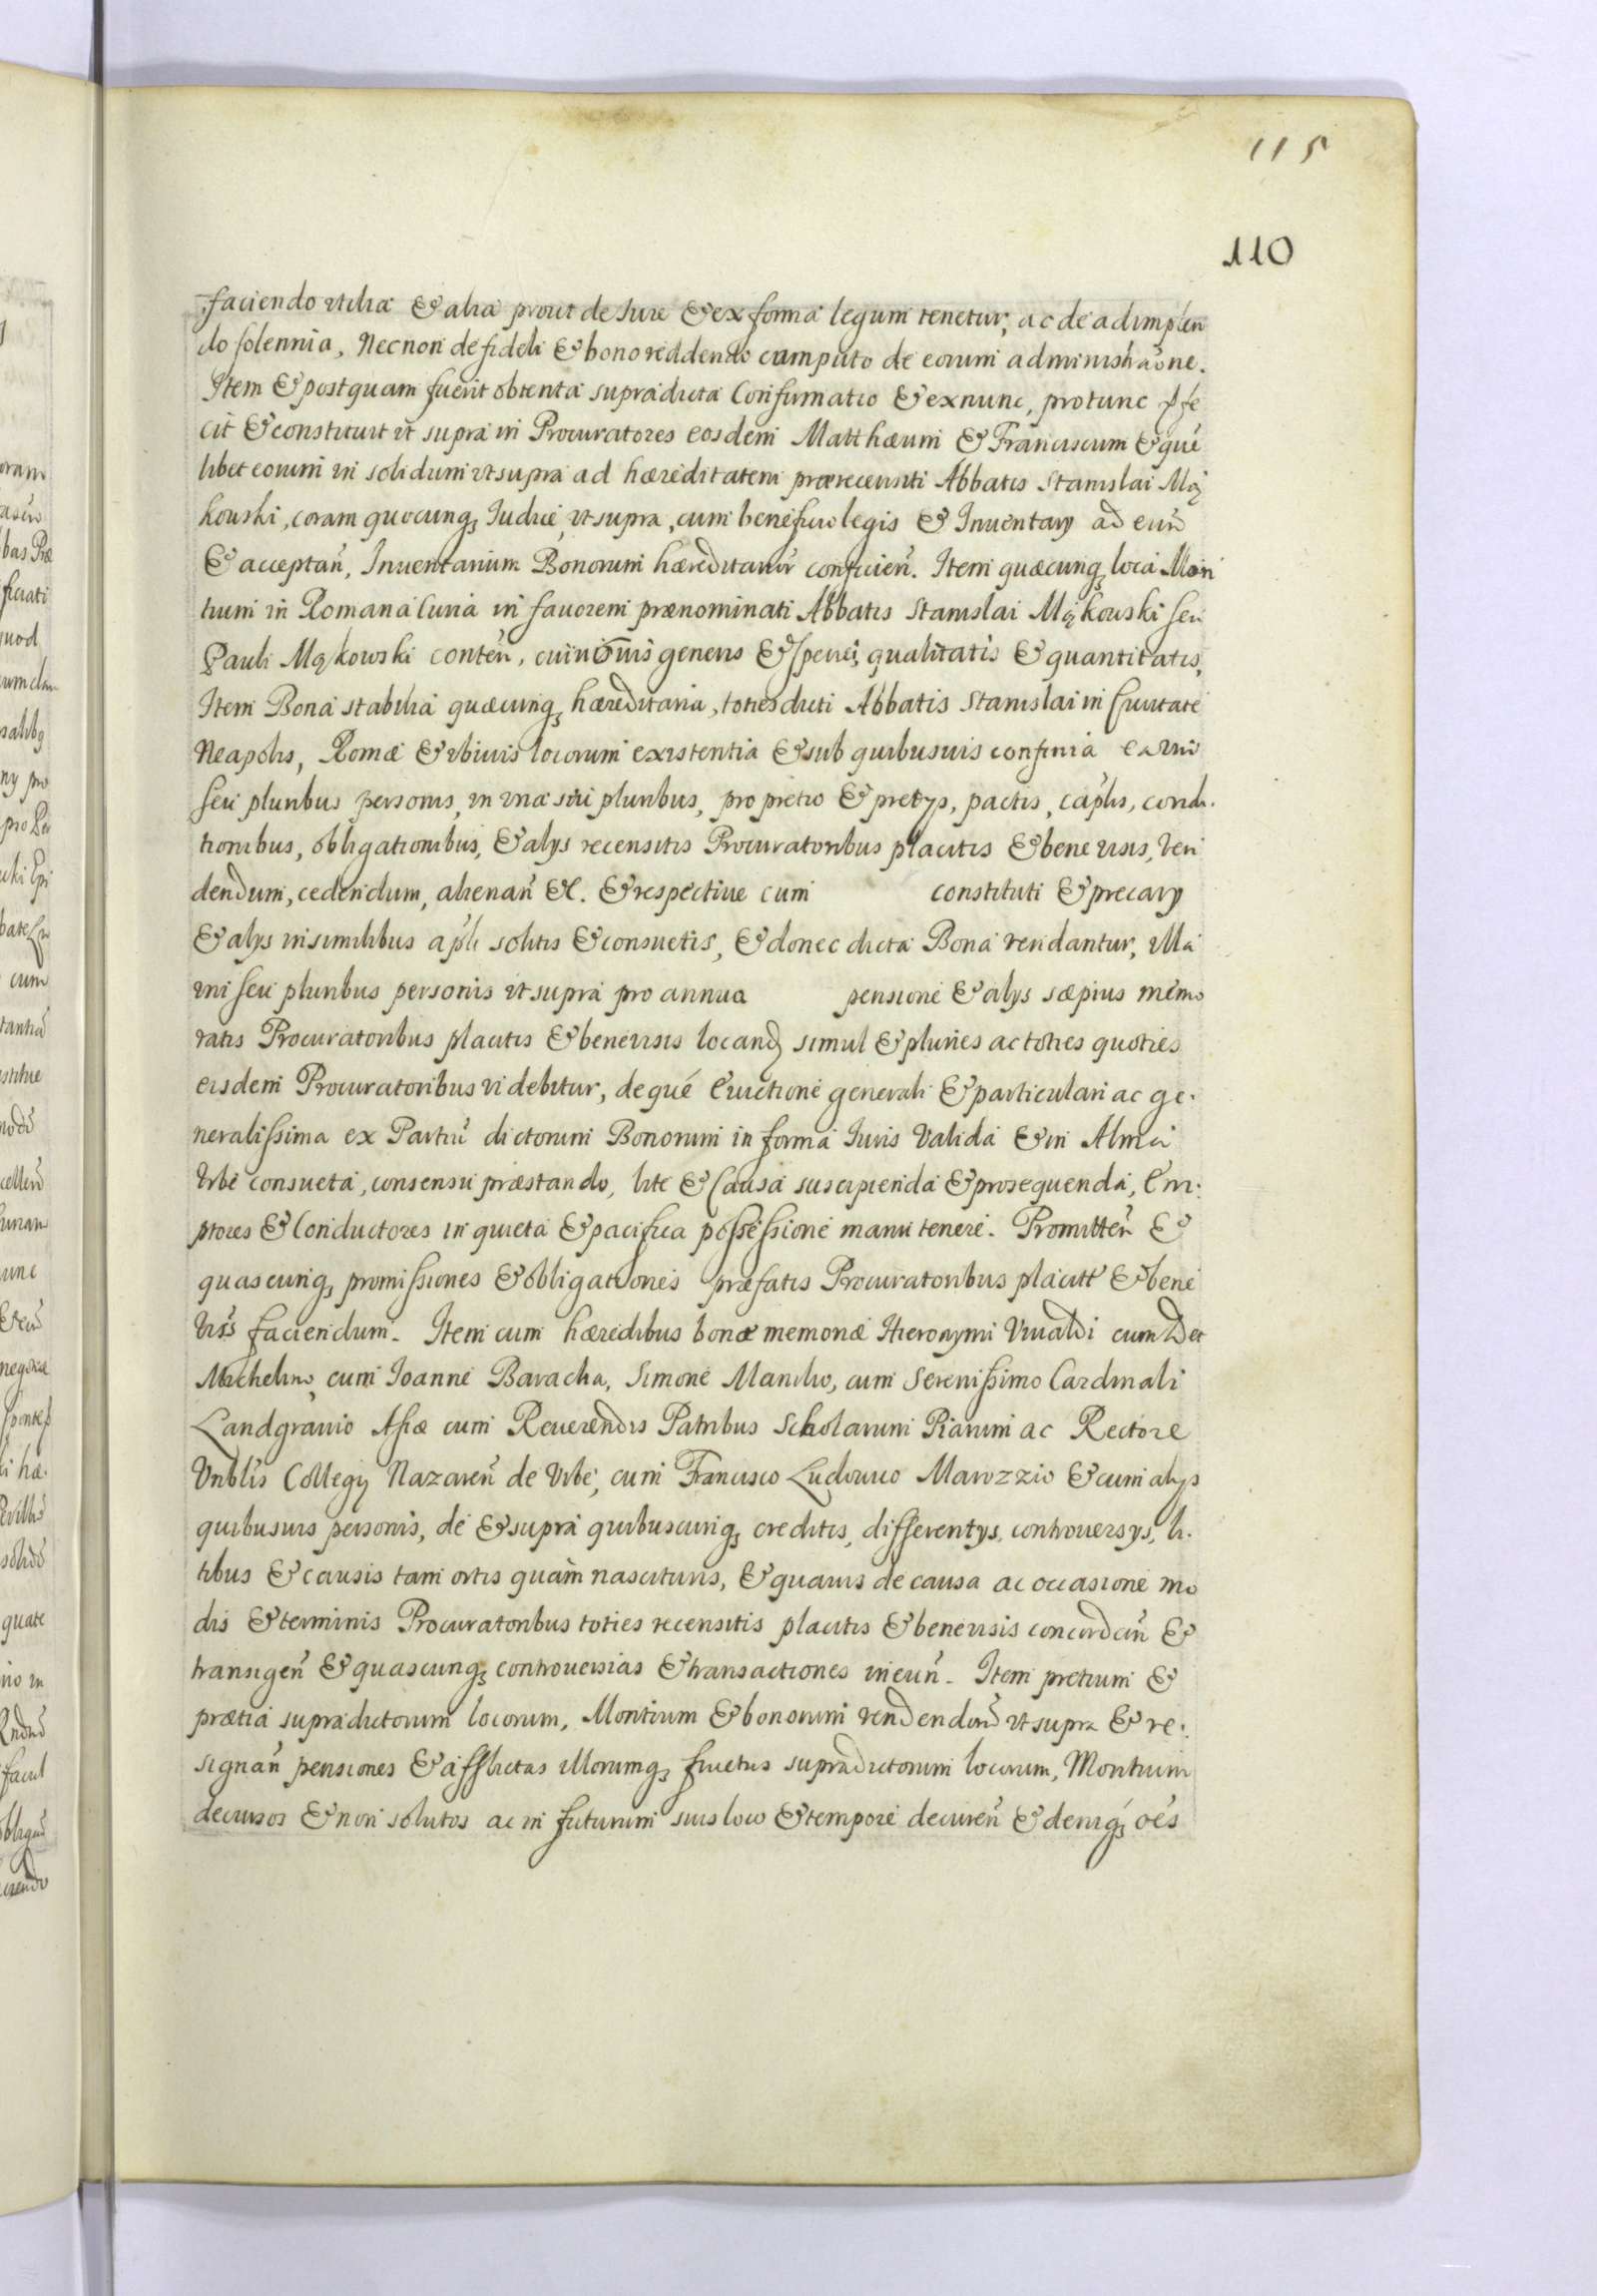 115
110
faciendo utilia & alia prout de Iure & ex forma legum tenetur, ac de adimplen
do solennia, Necnon de fideli & bono reddendo computo de eorum administraõne.
Item & postquam fuerit obtenta supradicta Confirmatio & exnunc, protunc
cit & constituit ut supra in Procuratores eosdem Matthæum & Franciscum & quē
libet eorum in solidum ut supra ad hæreditatem prærecensiti Abbatis Stanislai Mą
kowski, coram quocunq, Iudice, ut supra, cum beneficio legis & Inventarÿ ad eun̄
& acceptan̄, Inventarium Bonorum hæreditariū conficien̄. Item quæcunq, loca Mon
tium in Romana Curia in favorem prænominati Abbatis Stanislai Mąkowski seu
Pauli Mąkowski conten̄, cuiuōvis generis & speciei, qualitatis & quantitatis,
Item Bona stabilia quæcunq, hæreditaria, totiesdicti Abbatis Stanislai in Civitate
Neapolis, Romæ & ubivis locorum existentia & sub quibusvis confinia
seu pluribus personis, in una seu pluribus, pro pretio & pretÿs, pactis, cap̄lis, condi-
tionibus, obligationibus, & alÿs recensitis Procuratoribus placitis & bene visis, ven
dendum, cedendum, alienan̄ &. & respective cum constituti & precarÿ
& alÿs insimilibus ap̄li solitis & consuetis, & donec dicta Bona vendantur, illa
uni seu pluribus personis ut supra pro annua pensione & alÿs sæpius memo
ratis Procuratoribus placitis & benevisis locand simul & pluries ac toties quoties
eisdem Procuratoribus videbitur, de quē Evictione generali & particulari ac ge-
neralissima ex Partiū dictorum Bonorum in forma Iuris Valida & in Alma
Urbe consueta, consensu præstando, lite & Causa suscipienda & prosequenda, Em-
ptores & Conductores in quieta & pacifica possessione manu tenere. Promitten̄ &
quascunq, promissiones & obligationes præfatis Procuratoribus placitt & bene
visīs faciendum. Item cum hæredibus bonæ memoriæ Hieronymi Vivaldi cum
Michelino, cum Ioanne Baracha, Simone Manilio, cum Serenissimo Cardinali
Landgravio Asiæ cum Reverendis Patribus Scholarum Piarum ac Rectore
Vnblīs Collegÿ Nazaren̄ de Urbe, cum Francisco Ludovico Marozzio & cum alÿs
quibusvis personis, de & supra quibuscunq, creditis, differentÿs, controversÿs, li-
tibus & causis tam ortis quàm nascituris, & quavis de causa ac occasione mo
dis & terminis Procuratoribus toties recensitis placitis & benevisis concordan̄ &
transigen̄ & quascunq, controversias & transactiones ineun̄. Item pretium &
prætia supradictorum locorum, Montium & bonorum vendendorū ut supra & re-
signan̄ pensiones & afflictas illorumq, fructus supradictorum locorum, Montium
decursos & non solutos ac in futurum suis loco & tempore decuren̄ & deniq, oēs